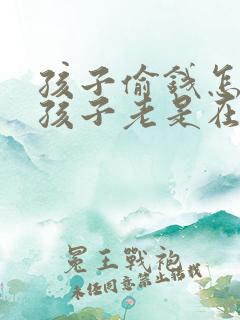 孩子偷钱怎
孩子老是在
冕王戰袍
未经同意禁止转载